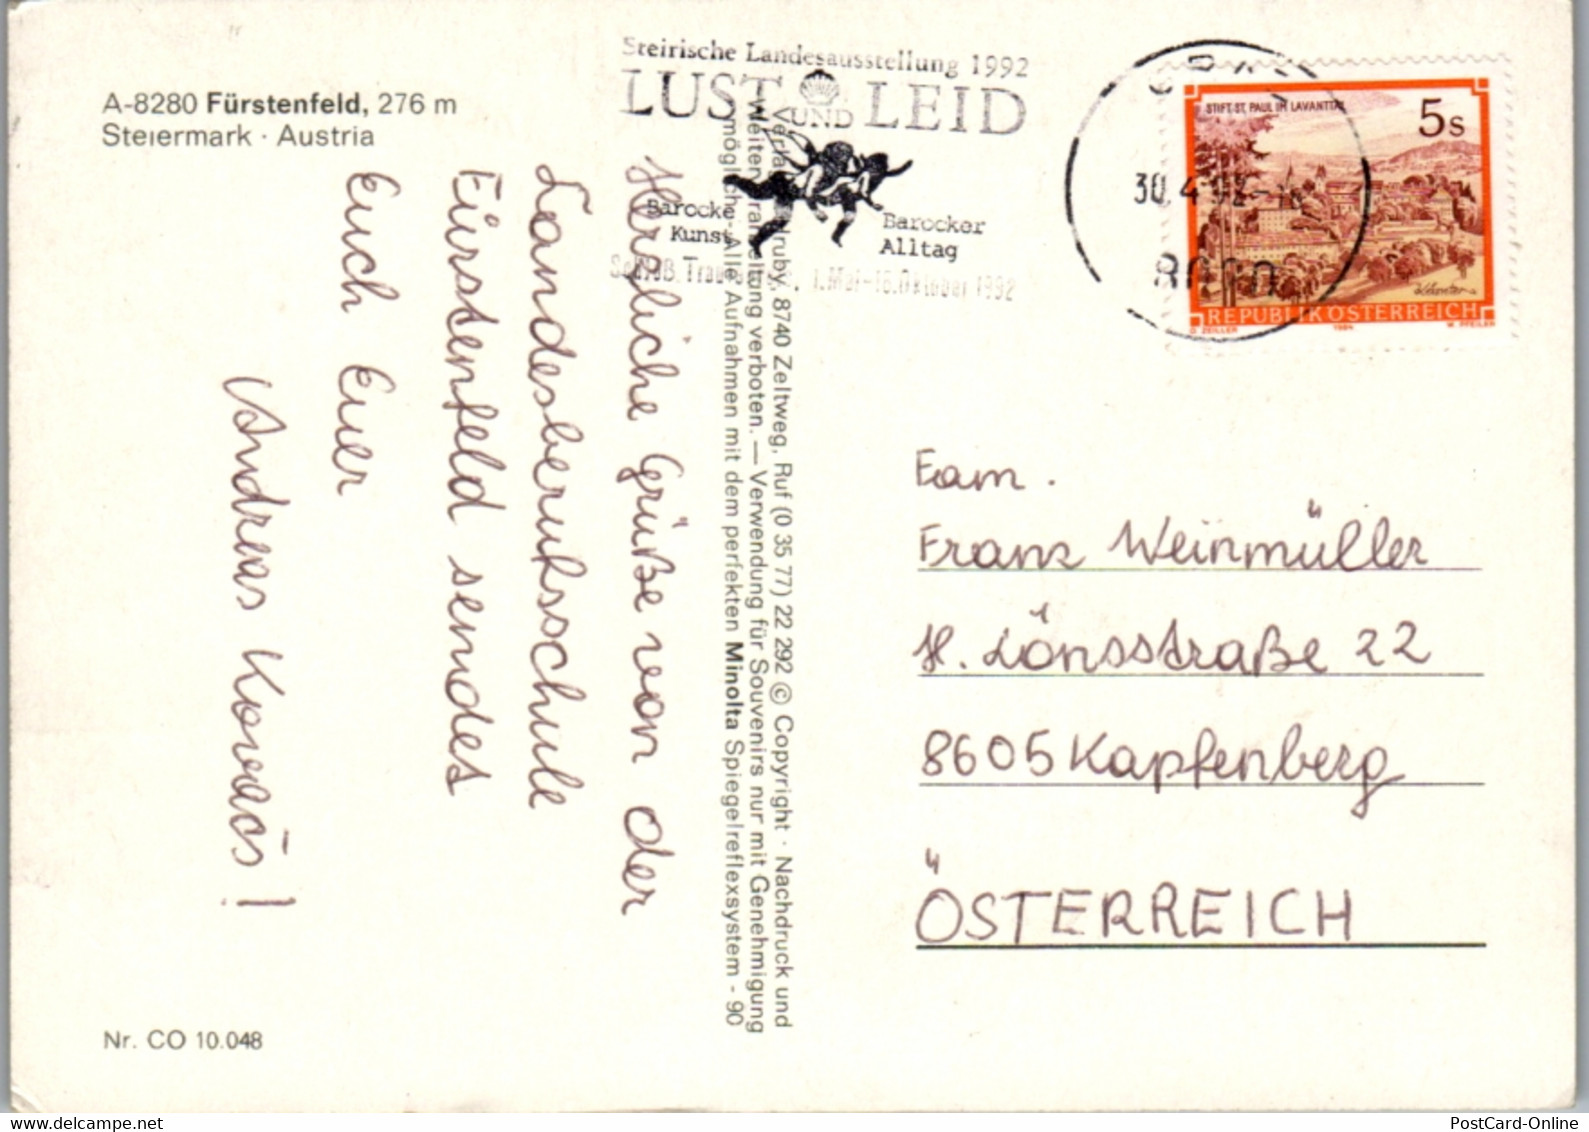 A-8280 Fürstenfeld, 276 m
Steiermark · Austria
Steirische Landesausstellung 1992
LUST UND LEID
Barocke
Kunst
Barocker
Alltag
1. Mai-18. Oktober 1992
30.4.92
8020
STIFT ST. PAUL IM LAVANTTAL
5s
REPUBLIK ÖSTERREICH
O. ZEILLER 1984 W. PFEILER
Herzliche Grüße von der
Landesberufsschule
Fürstenfeld sendet
Euch Euer
Andreas Kovacs!
8740 Zeltweg, Ruf (0 35 77) 22 292 © Copyright · Nachdruck und
verboten. — Verwendung für Souvenirs nur mit Genehmigung
Alle Aufnahmen mit dem perfekten Minolta Spiegelreflexsystem - 90
Fam.
Franz Weinmüller
H. Lönsstraße 22
8605 Kapfenberg
ÖSTERREICH
Nr. CO 10.048
PostCard-Online